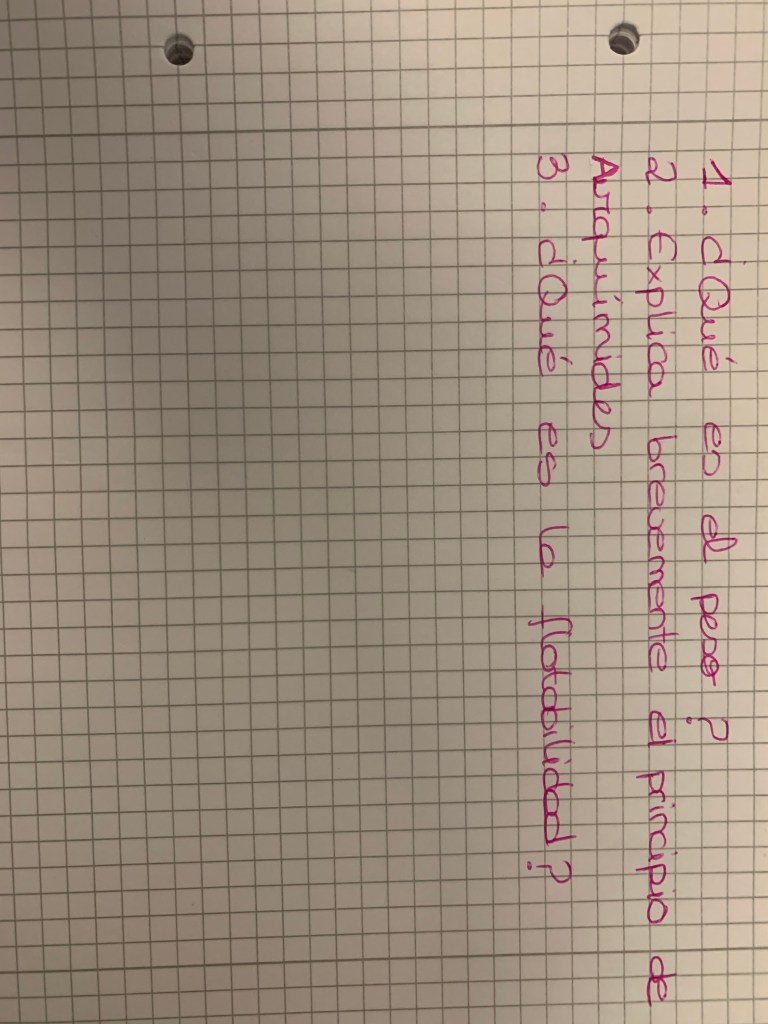 1. ¿Qué es el peso?
2. Explica brevemente el principio de
Arquímides
3. ¿Qué es la flotabilidad?